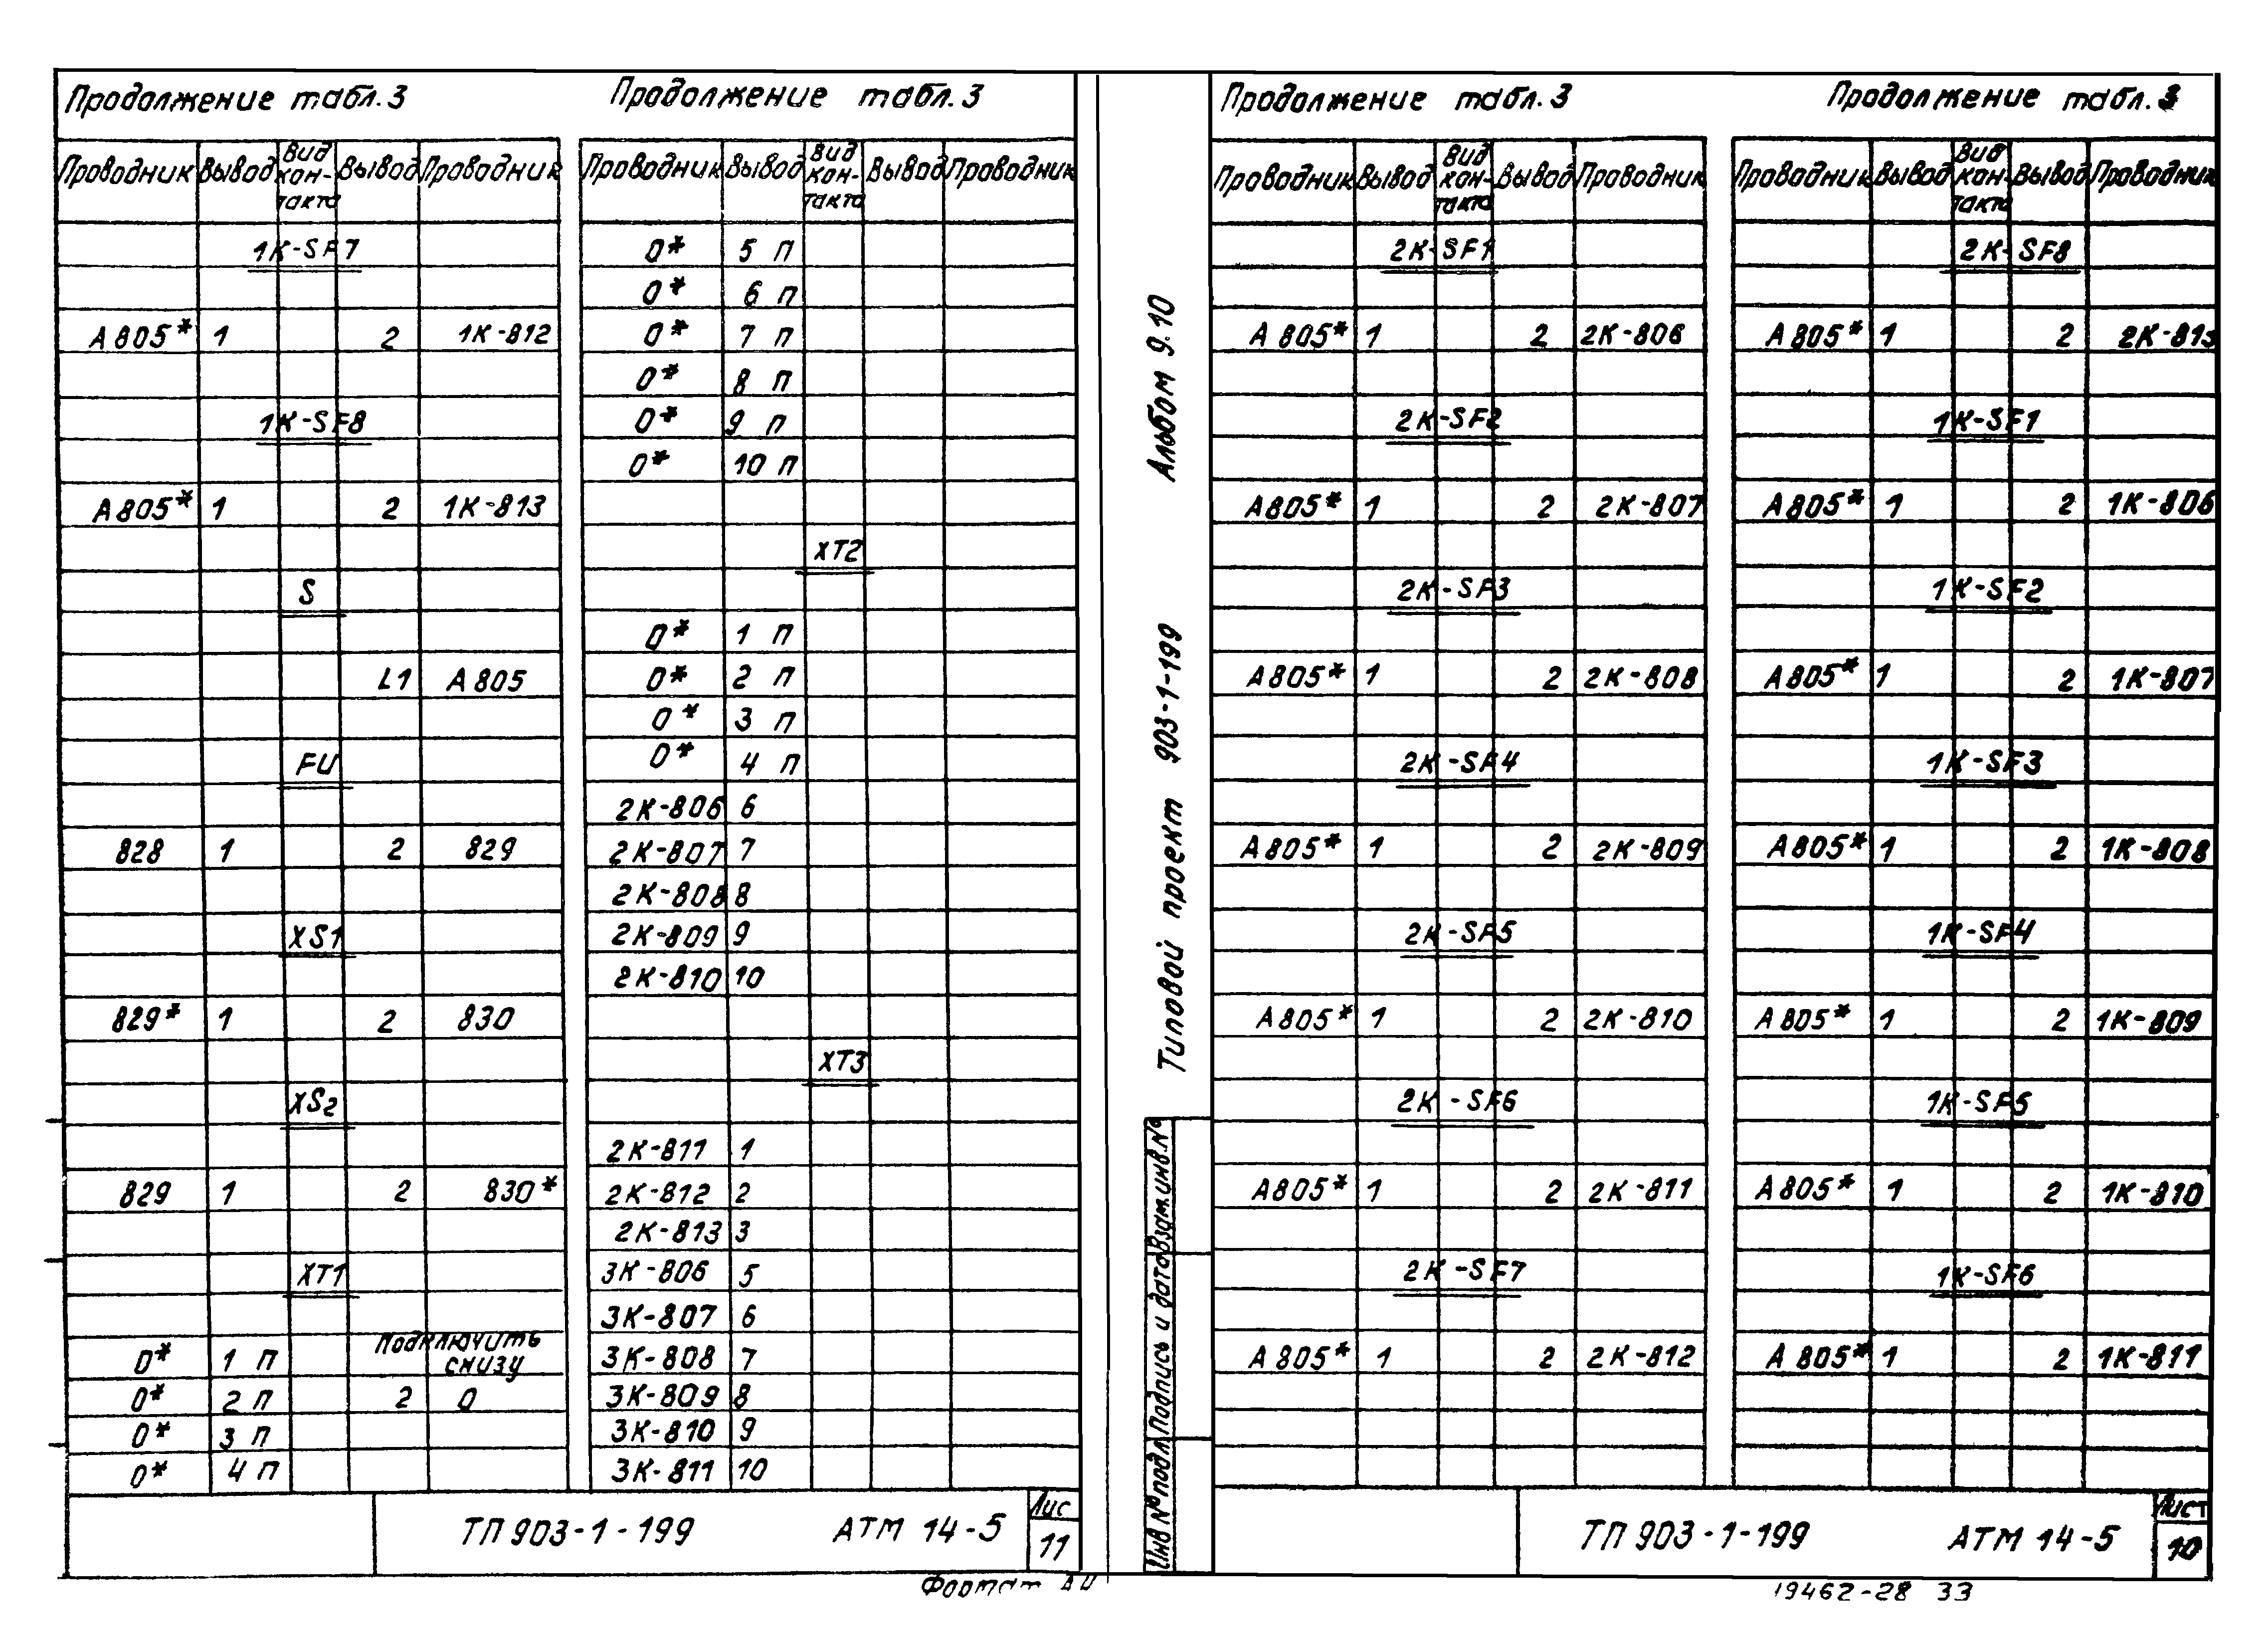 Продолжение табл. 3
Проводник Вывод Вид кон-такта Вывод Проводник
1К-SF7
А805* 1 2 1К-812
1К-SF8
А805* 1 2 1К-813
S
L1 А805
FU
828 1 2 829
XS1
829* 1 2 830
XS2
829 1 2 830*
XT1
Подключить
снизу
0* 1 П
0* 2 П 2 0
0* 3 П
0* 4 П
Продолжение табл. 3
Проводник Вывод Вид кон-такта Вывод Проводник
0* 5 П
0* 6 П
0* 7 П
0* 8 П
0* 9 П
0* 10 П
XT2
0* 1 П
0* 2 П
0* 3 П
0* 4 П
2К-806 6
2К-807 7
2К-808 8
2К-809 9
2К-810 10
XT3
2К-811 1
2К-812 2
2К-813 3
3К-806 5
3К-807 6
3К-808 7
3К-809 8
3К-810 9
3К-811 10
ТП 903-1-199 АТМ 14-5
Лис
11
Формат А4
Типовой проект 903-1-199 Альбом 9.10
Инв № подл. Подпись и дата Взам. инв. №
Продолжение табл. 3
Проводник Вывод Вид кон-такта Вывод Проводник
2К-SF1
А805* 1 2 2К-806
2К-SF2
А805* 1 2 2К-807
2К-SF3
А805* 1 2 2К-808
2К-SF4
А805* 1 2 2К-809
2К-SF5
А805* 1 2 2К-810
2К-SF6
А805* 1 2 2К-811
2К-SF7
А805* 1 2 2К-812
Продолжение табл. 3
Проводник Вывод Вид кон-такта Вывод Проводник
2К-SF8
А805* 1 2 2К-813
1К-SF1
А805* 1 2 1К-806
1К-SF2
А805* 1 2 1К-807
1К-SF3
А805* 1 2 1К-808
1К-SF4
А805* 1 2 1К-809
1К-SF5
А805* 1 2 1К-810
1К-SF6
А805* 1 2 1К-811
ТП 903-1-199 АТМ 14-5
Лист
10
19462-28 33